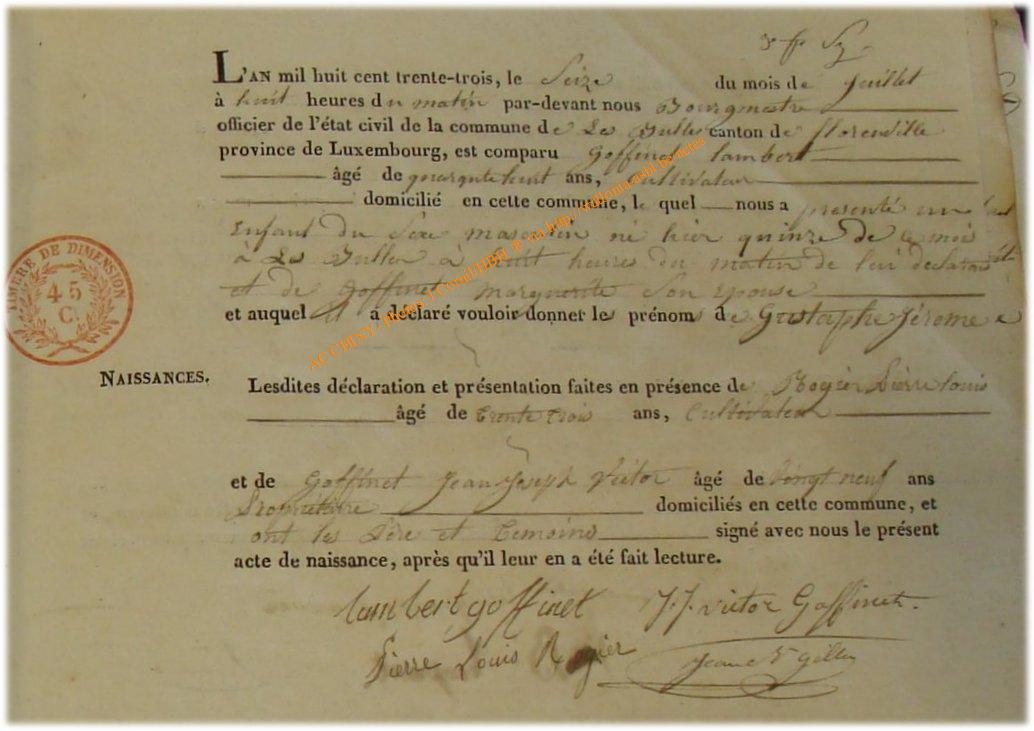 L'AN mil huit cent trente-trois, le Seize du mois de Juillet
à huit heures du matin par-devant nous Bourgmestre
officier de l'état civil de la commune de Les Bulles canton de florenville
province de Luxembourg, est comparu Goffinet lambert
âgé de quarante huit ans, Cultivateur
domicilié en cette commune, le quel nous a presenté un
Enfant du Sexe masculin né hier quinze de ce mois
à Les Bulles à huit heures du matin de lui declarant
et de Goffinet Marguerite Son epouse
et auquel il a déclaré vouloir donner les prénoms de Gustaphe Jérome
TIMBRE DE DIMENSION
45
C.
NAISSANCES.
Lesdites déclaration et présentation faites en présence de Rogier Pierre louis
âgé de trente trois ans, Cultivateur
et de Goffinet Jean Joseph Victor âgé de vingt neuf ans
Propriétaire domiciliés en cette commune, et
ont les Père et temoins signé avec nous le présent
acte de naissance, après qu'il leur en a été fait lecture.
lambert goffinet J.J. victor Goffinet.
Pierre Louis Rogier